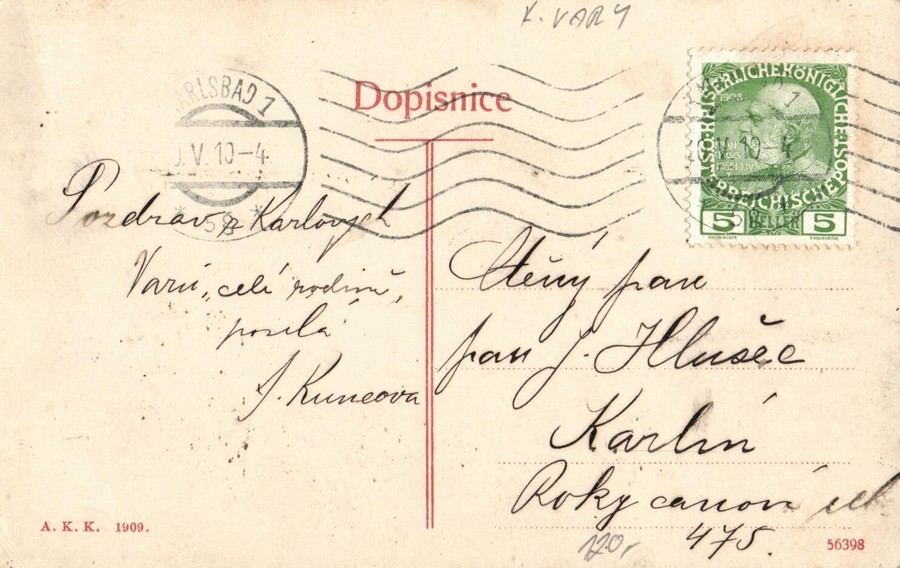 K. VARY
Dopisnice
KARLSBAD 1
V. 10-4
* 5g *
KAISERLICHE KÖNIGLICHE ÖSTERREICHISCHE POST
1908
5 HELLER 5
Pozdrav z Karlových
Varů, celé rodině,
posílá
J. Kuncova
Ctěný pan
pan J. Hlušec
Karlín
Rokycanova
475.
A. K. K. 1909.
120,-
56398